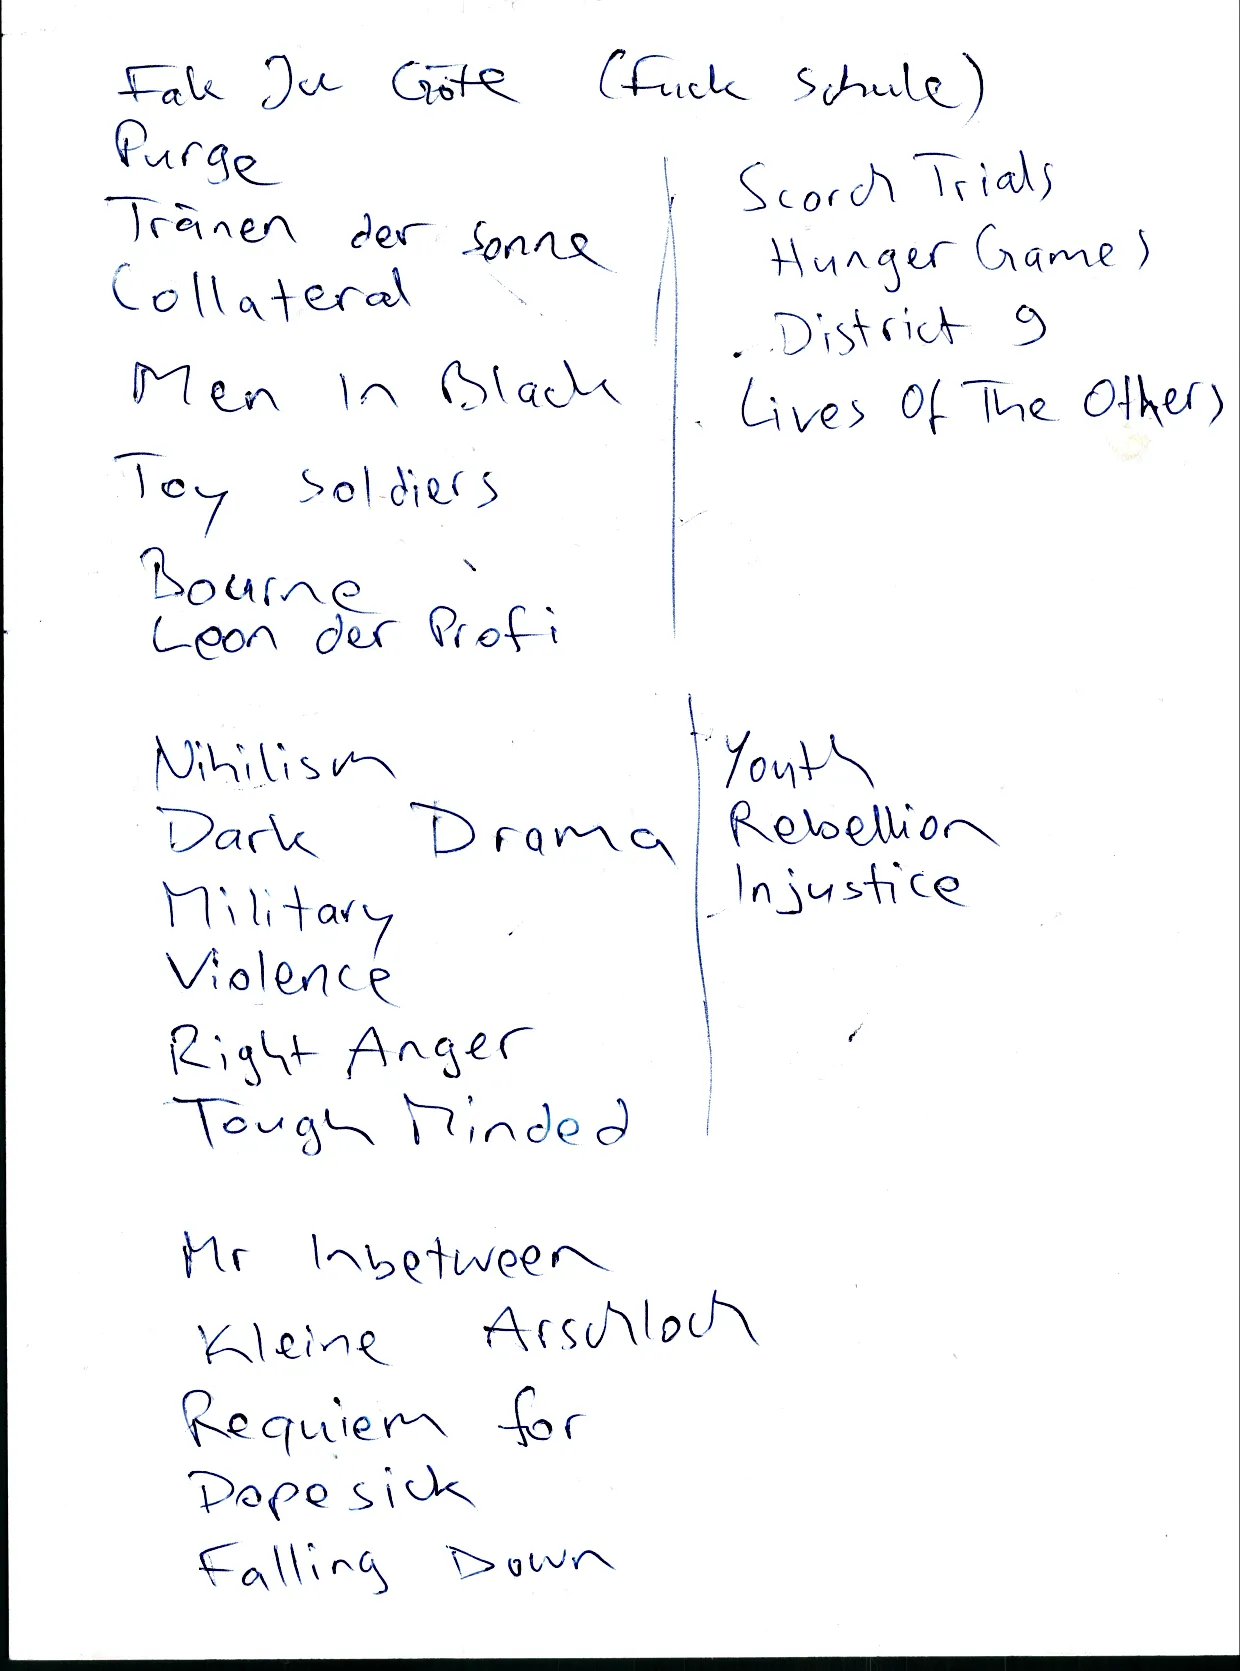 Fak Ju Göte (Fuck Schule)
Purge
Tränen der Sonne
Collateral
Men In Black
Toy Soldiers
Bourne
Leon der Profi
Scorch Trials
Hunger Games
District 9
Lives Of The Others
Nihilism
Dark Drama
Military
Violence
Right Anger
Tough Minded
Youth
Rebellion
Injustice
Mr Inbetween
Kleine Arschloch
Requiem for
Dopesick
Falling Down